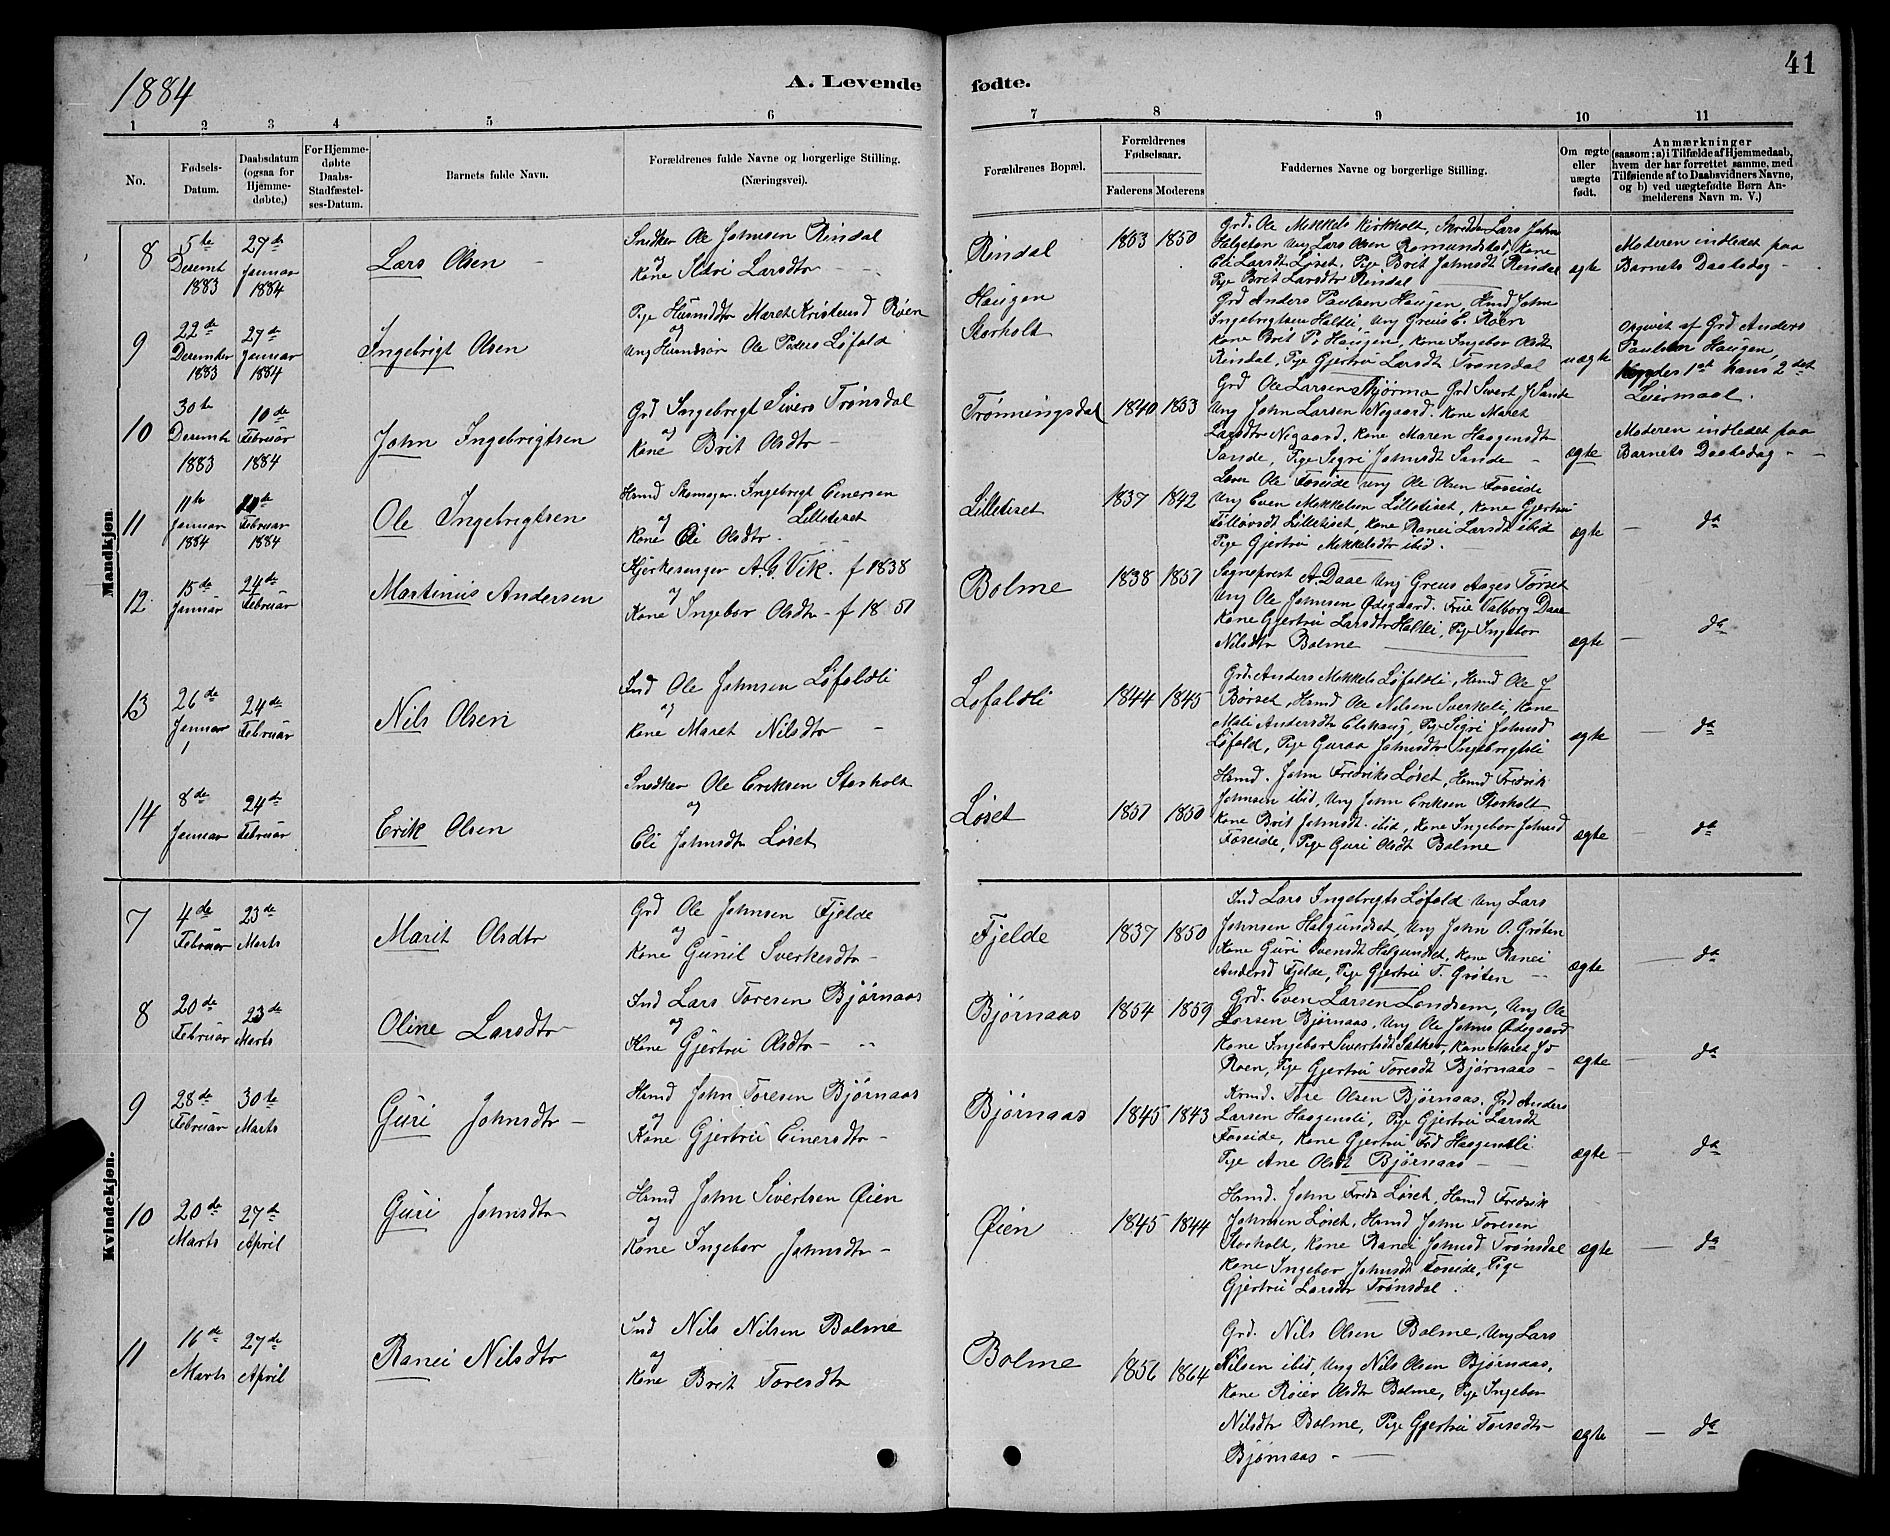 1884
A. Levende fødte.
41
1 2 3 4 5 6 7 8 9 10 11
No.
Fødsels-Datum.
Daabsdatum (ogsaa for Hjemmedøbte,)
For Hjemmedøbte Daabs-Stadfæstelses-Datum.
Barnets fulde Navn.
Forældrenes fulde Navne og borgerlige Stilling. (Næringsvei).
Forældrenes Bopæl.
Forældrenes Fødselsaar.
Faderens Moderens
Faddernes Navne og borgerlige Stilling.
Om ægte eller uægte født.
Anmærkninger
(saasom: a) i Tilfælde af Hjemmedaab, hvem der har forrettet samme, med Tilføiende af to Daabsvidners Navne, og b) ved uægtefødte Børn Anmelderens Navn m. V.)
Mandkjøn.
8
5te Decembr 1883
27de Januar 1884
Lars Olsen
Snedker Ole Johnsen Rindal
og
Kone Sidri Larsdtr
Rindal
1853 1850
Grd. Ole Mekkels Kirkholt, Skredder Lars John
Halgeton Ung Lars Olsen Romundstad, Kone
Eli Larsdt Løset, Pige Brit Johnsdt Rindal
Pige Brit Larsdtr Rindal
ægte
Moderen indledet paa
Barnets Daabsdag
9
22de December 1883
27de Januar 1884
Ingebrigt Olsen
Pige Husmdtr Maret Kristensd Røen
og
Ung Husmdsøn Ole Peders Løfald
Haugen
Storholt
Grd Anders Paulsen Haugen, Hmd John
Ingebrigtsen Haltli, Ung Greus E. Røen
Kone Brit P. Haugen, Kone Ingebor Olsdt
Rindal, Pige Gjertru Larsdt Trønsdal
uægte
Opgivet af Grd Anders
Paulsen Haugen,
1st hans 2det
Leiermaal.
10
30te Decembr 1883
10de Februar 1884
John Ingebrigtsen
Grd Ingebrigt Sivers Trønsdal
og
Kone Brit Olsdtr
Trønningsdal
1840 1853
Grd Ole Larsen Bjørma Grd Sivert J Sande
Ung John Larsen Negaard. Kone Maret
Larsdtr Negaard, Kone Maren Haagensdtr
Sande, Pige Segri Johnsdt Sande
ægte
Moderen indledet paa
Barnets Daabsdag
11
11te Januar 1884
10de Februar 1884
Ole Ingebrigtsen
Hsmd Skomager Ingebrigt Einersen
og Lilletiset
Kone Eli Olsdtr
Lilletiset
1837 1842
Ole Foseide Ung Ole Olsen Foseide
Ung Even Mekkelsen Lilletiset, Kone Gjertru
Lilletiset, Kone Ranei Larsdt ibid
Pige Gjertru Mekkelsdtr ibid.
ægte
da
12
15de Januar
24de Februar
Martinus Andersen
Kjerkesanger A. G. Vik. f 1838
og
Kone Ingebor Olsdtr f 1851
Bolme
1838 1851
Sogneprest A. Daae Ung Greus Aages Tørset
Ung Ole Johnsen Ødegaard. Frue Valborg Daae
Kone Gjertru Larsdtr Haltli, Pige Ingebor
Nilsdtr Bolme
ægte
da
13
26de Januar
24de Februar
Nils Olsen
Ind Ole Johnsen Løfaldli
og
Kone Maret Nilsdtr
Løfaldli
1844 1845
Grd. Anders Mekkels Løfaldli, Hsmd Ole J
Børset, Hsmd Ole Nilsen Sverkeli, Kone
Mali Andersdt Elshaug, Pige Sigri Johnsd
Løfald, Pige Guraa Johnsdtr Ingebrigtsli
ægte
da
14
8de Januar
24de Februar
Erik Olsen
Snedker Ole Eriksen Storholt
og
Eli Johnsdt Løset
Løset
1851 1850
Hsmd. John Fredriks Løset, Hsmd Fredrik
Johnsen ibid, Ung John Eriksen Storholt
Kone Brit Johnsdt ibid, Kone Ingebor Johnsd
Foseide, Pige Guri Olsdt Bolme
ægte
da
Kvindekjøn.
7
4de Februar
23de Marts
Marit Olsdtr
Grd Ole Johnsen Fjelde
og
Kone Gunil Sverkesdtr
Fjelde
1837 1850
Ind Lars Ingebrigts Løfald Ung Lars
Johnsen Halgundset, Ung John O. Grøten
Kone Guri Svensdt Halgundset, Kone Ranei
Andersd Fjelde, Pige Gjertru T. Grøten
ægte
da
8
20de Februar
23de Marts
Oline Larsdtr
Ind Lars Toresen Bjørnaas
og
Kone Gjertru Olsdtr
Bjørnaas
1854 1859
Grd. Even Larsen Landsem, Ung Ole
Larsen Bjørnaas, Ung Ole Johns Ødegaard
Kone Ingebor Sivertsdt Sæther, Kone Maret Jd
Roen, Pige Gjertru Toresdt Bjørnaas
ægte
da
9
28de Februar
30te Marts
Guri Johnsdtr
Hsmd John Toresen Bjørnaas
og
Kone Gjertru Einersdtr
Bjørnaas
1845 1843
Hsmd. Tore Olsen Bjørnaas, Grd Anders
Larsen Haagenli, Pige Gjertru Larsdt
Foseide, Kone Gjertru Frd Haagenli
Pige Ane Olsdt Bjørnaas
ægte
da
10
20de Marts
27de April
Guri Johnsdtr
Hsmd John Sivertsen Øien
og
Kone Ingebor Johnsdtr
Øien
1845 1844
Hsmd. John Freds Løset, Hsmd Fredrik
Johnsen Løset, Hsmd John Toresen
Storholt, Kone Ranei Johnsd Trønsdal
Kone Ingebor Johnsdt Foseide, Pige
Gjertru Larsdtr Trønsdal.
ægte
da
11
16de Marts
27de April
Ranei Nilsdtr
Ind Nils Nilsen Bolme
og
Kone Brit Toresdtr
Bolme
1856 1864
Grd. Nils Olsen Bolme, Ung Lars
Nilsen ibid, Ung Nils Olsen Bjørnaas,
Kone Røier Olsdtr Bolme, Pige Ingebor
Nilsdtr Bolme, Pige Gjertru Toresdtr
Bjørnaas
ægte
da